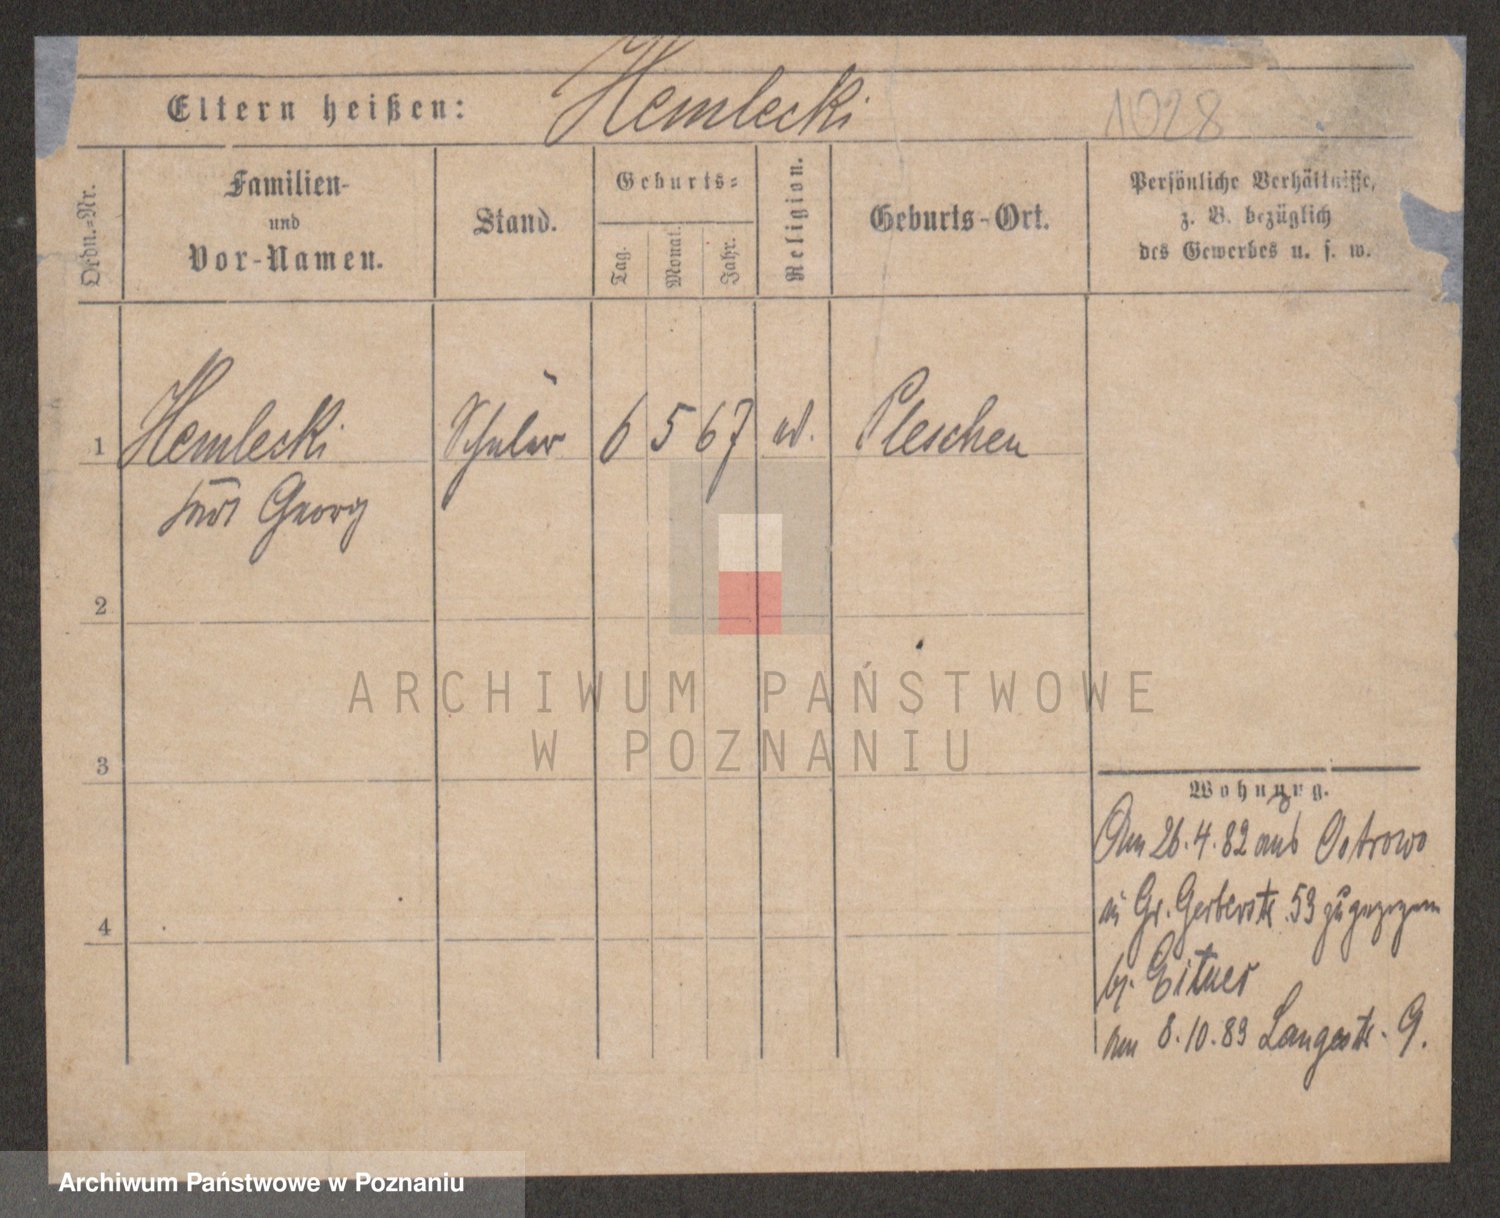 Hemlecki
Eltern heißen:
1028
Ordn.-Nr.
Familien-
und
Vor-Namen.
Stand.
Geburts-
Tag.
Monat.
Jahr.
Religion.
Geburts-Ort.
Persönliche Verhältnisse,
z. B. bezüglich
des Gewerbes u. s. w.
1 Hemlecki Schüler 6 5 67 Pleschen
Georg
2
3
4
Wohnung.
Am 26.4.82 aus Ostrowo
in Gr. Gerberstr. 53 zugezogen
bj. Eitner
am 8.10.83 Langestr. 9.
ARCHIWUM PAŃSTWOWE
W POZNANIU
Archiwum Państwowe w Poznaniu